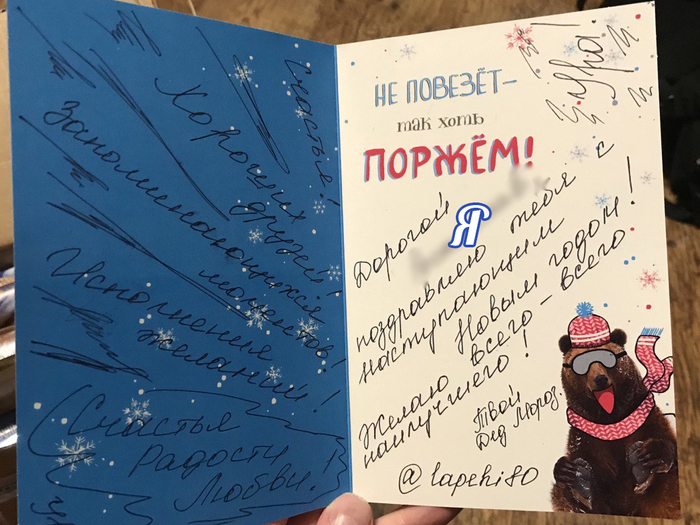 Счастья!
Хороших
друзей!
Запоминающихся
моментов!
Исполнения
желаний!
Счастья
Радости
Любви!
НЕ ПОВЕЗЁТ—
так хоть
ПОРЖЁМ!
Ура!
Дорогой
Я
поздравляю тебя с
наступающим
Новым годом!
Желаю всего-всего
наилучшего!
Твой
Дед Мороз.
@lapehi80